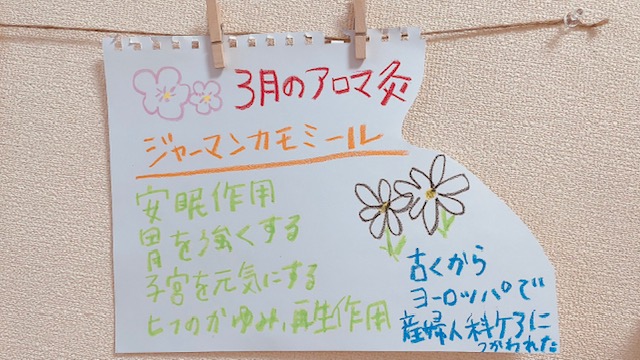 3月のアロマ灸
ジャーマンカモミール
安眠作用
胃を強くする
子宮を元気にする
ヒフのかゆみ、再生作用
古くから
ヨーロッパで
産婦人科ケアに
つかわれた